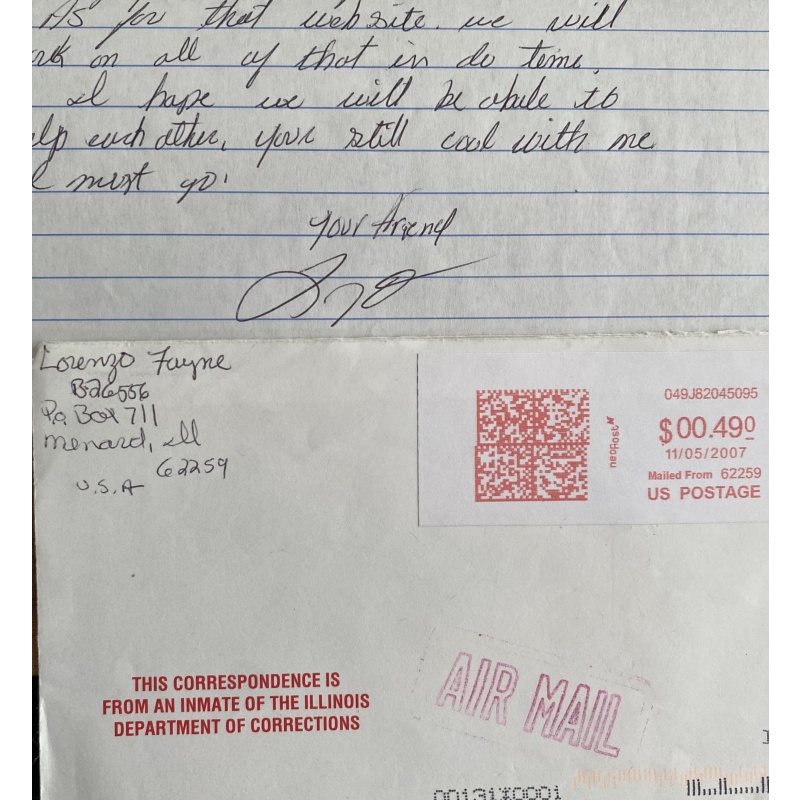 As for that website. we will
rk on all of that in do time.
I hope we will be abule to
lp each other, your still cool with me
I must go!
Your friend
Lorenzo Fayne
B26556
P.o. Box 711
menard, Ill
62259
U.S.A
049J82045095
$00.490
11/05/2007
Mailed From 62259
US POSTAGE
neopost
THIS CORRESPONDENCE IS
FROM AN INMATE OF THE ILLINOIS
DEPARTMENT OF CORRECTIONS
AIR MAIL